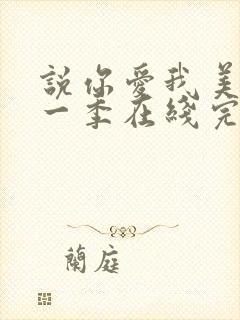 說你愛我美
一季在綫完
蘭庭